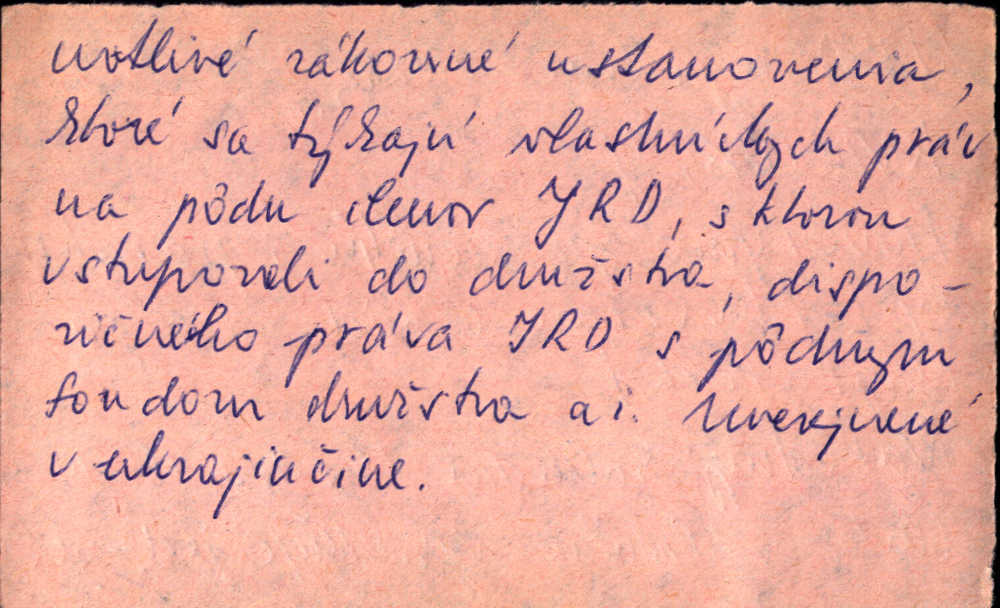 notlivé zákonné ustanovenia,
ktoré sa týkajú vlastníckych práv
na pôdu členov JRD, s ktorou
vstupovali do družstva, dispo-
zičného práva JRD s pôdnym
fondom družstva a i. Uverejnené
v ukrajinčine.